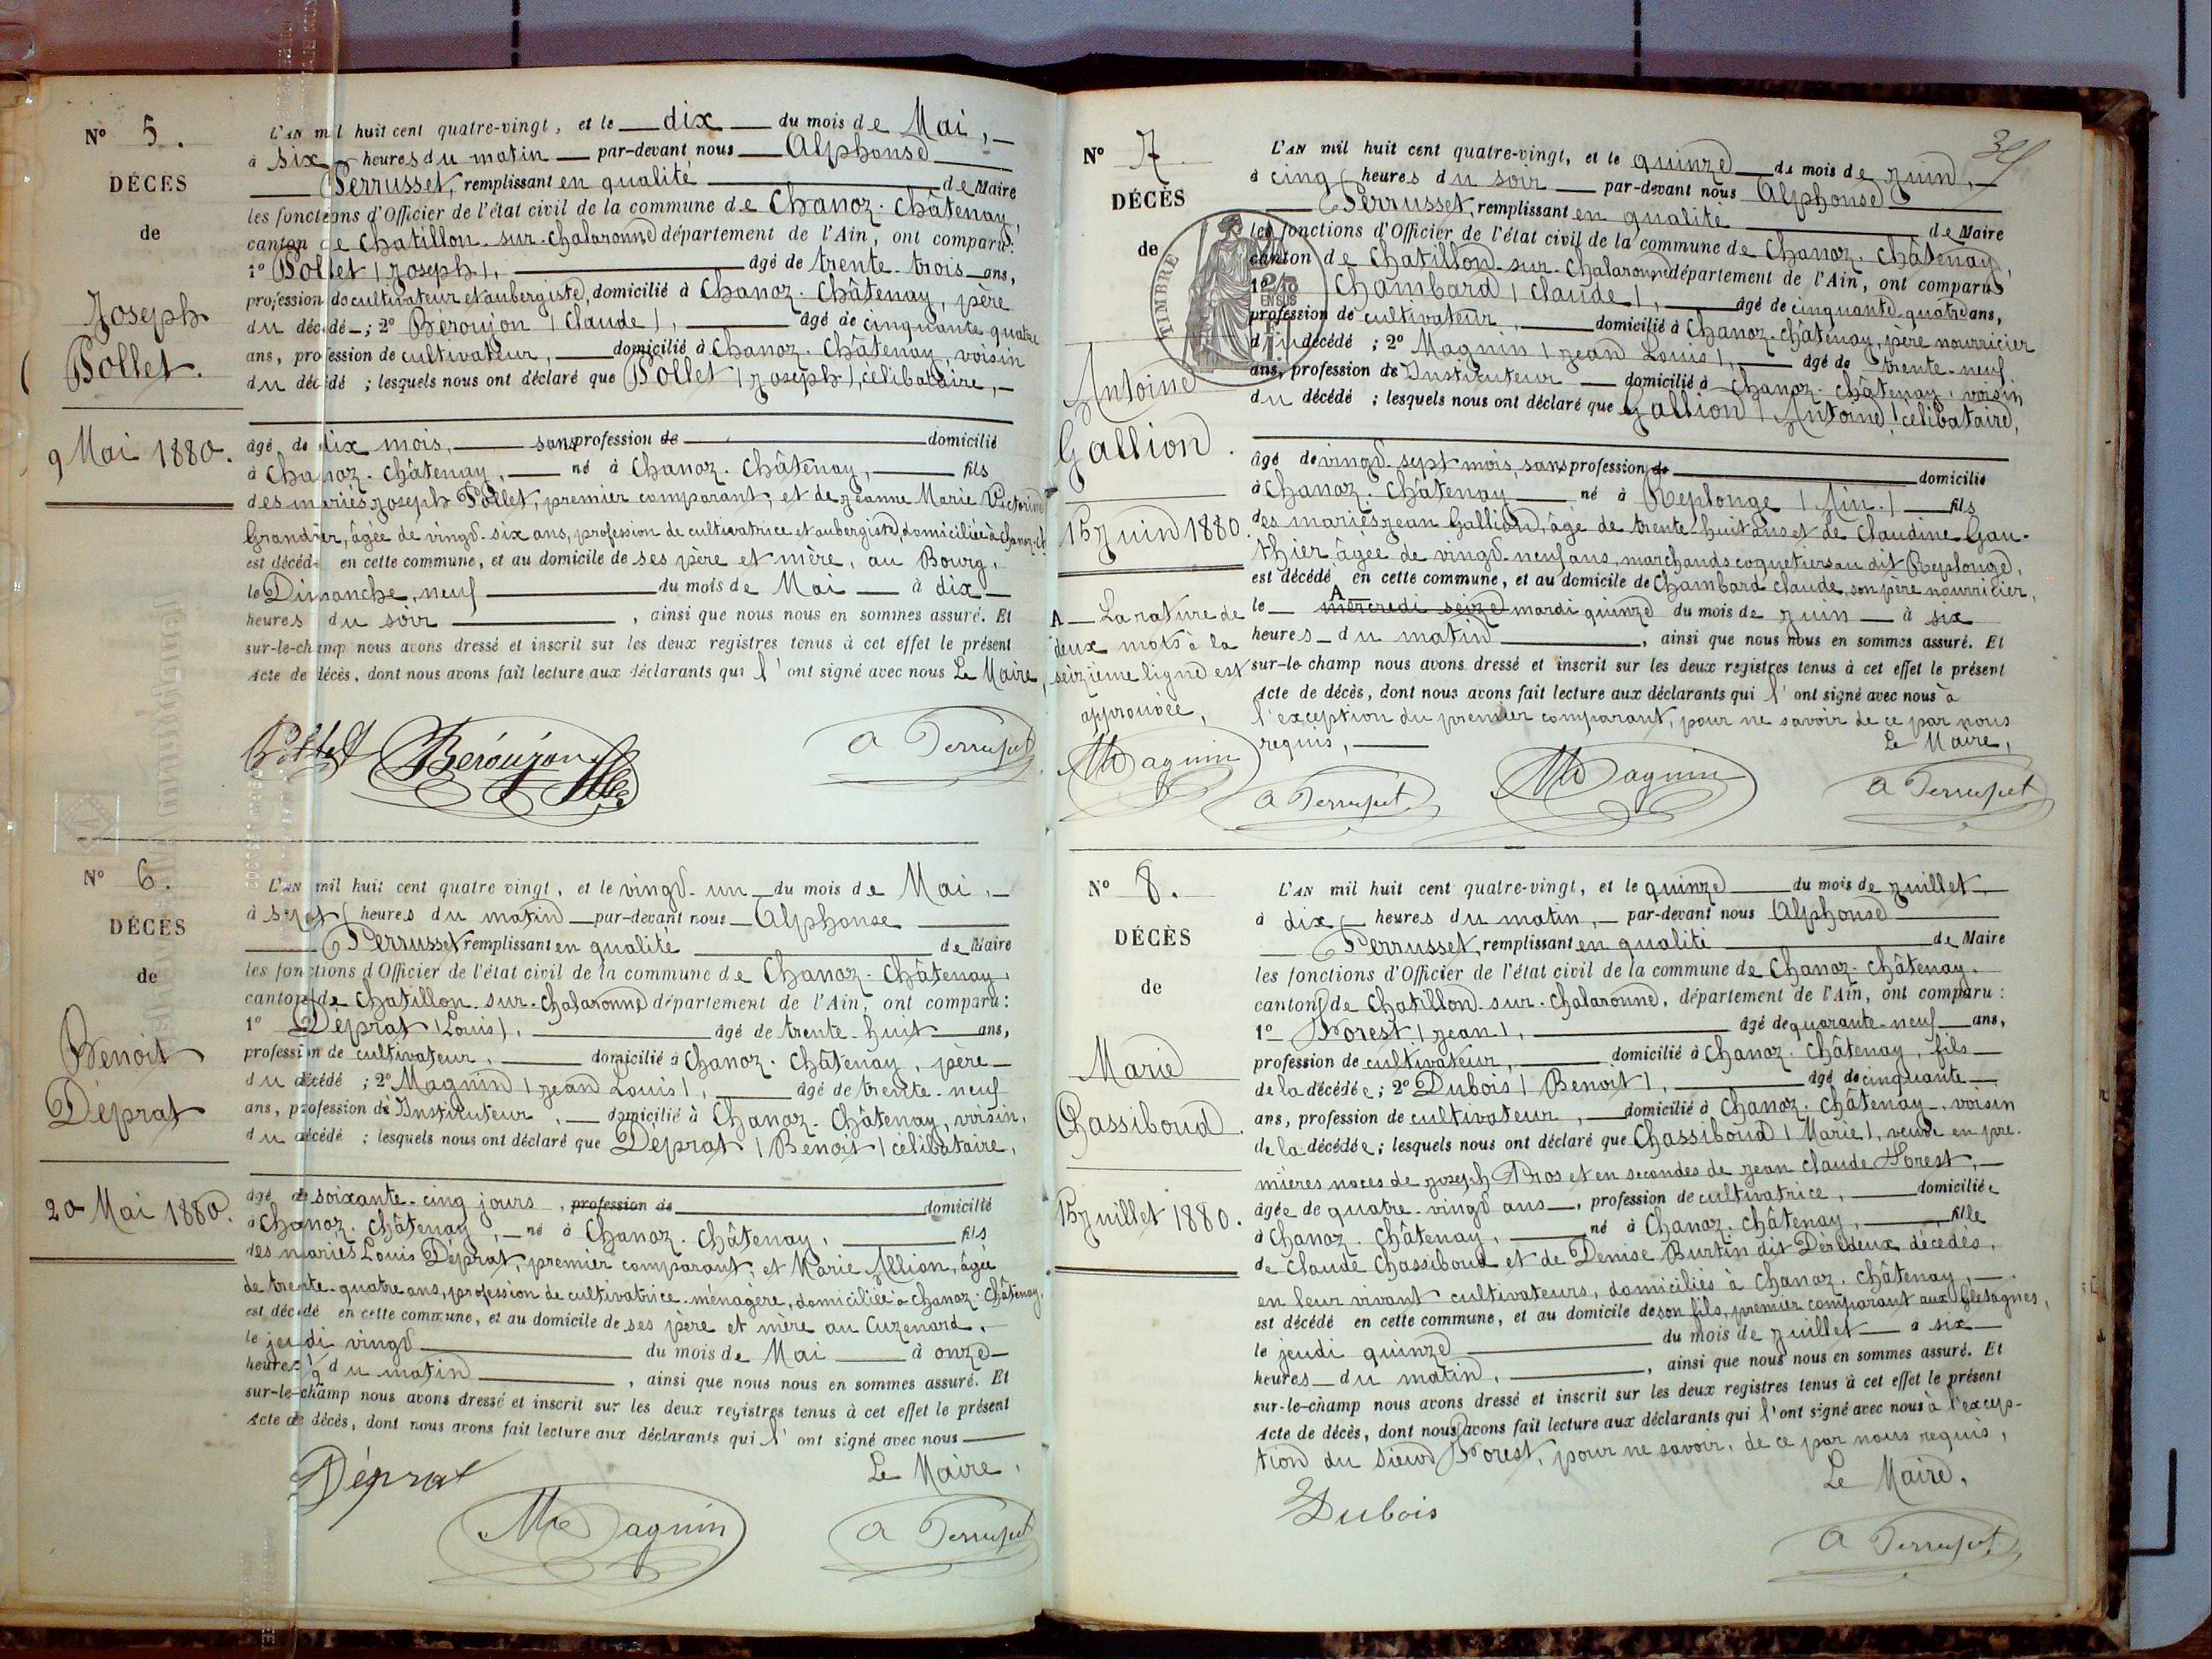 N° 5.
DÉCÈS
de
Joseph
Pollet.
9 Mai 1880.
L'AN mil huit cent quatre-vingt, et le dix du mois de Mai,
à six heures du matin par-devant nous Alphonse
Perrusset, remplissant en qualité de Maire
les fonctions d'Officier de l'état civil de la commune de Chanoz-Châtenay,
canton de Chatillon-sur-Chalaronne département de l'Ain, ont comparu:
1° Pollet (Joseph), âgé de trente-trois ans,
profession de cultivateur et aubergiste, domicilié à Chanoz-Châtenay, père
du décédé; 2° Béroujon (Claude), âgé de cinquante quatre
ans, profession de cultivateur, domicilié à Chanoz-Châtenay, voisin
du décédé ; lesquels nous ont déclaré que Pollet (Joseph), célibataire,
âgé de dix mois, sans profession de domicilié
à Chanoz-Châtenay, né à Chanoz-Châtenay, fils
des mariés Joseph Pollet, premier comparant, et de Jeanne Marie Victorine
Grandier, âgée de vingt-six ans, profession de cultivatrice et aubergiste, domiciliée à Chanoz-Ch
est décédé en cette commune, et au domicile de ses père et mère, au Bourg,
le Dimanche, neuf du mois de Mai à dix
heures du soir, ainsi que nous nous en sommes assuré. Et
sur-le-champ nous avons dressé et inscrit sur les deux registres tenus à cet effet le présent
Acte de décès, dont nous avons fait lecture aux déclarants qui l'ont signé avec nous Le Maire,
Pollet Béroujon A Perrusset
N° 6.
DÉCÈS
de
Benoit
Déprat
20 Mai 1880.
L'AN mil huit cent quatre vingt, et le vingt-un du mois de Mai,
à sept heures du matin par-devant nous Alphonse
Perrusset remplissant en qualité de Maire
les fonctions d'Officier de l'état civil de la commune de Chanoz-Châtenay,
canton de Chatillon-sur-Chalaronne département de l'Ain, ont comparu:
1° Déprat (Louis), âgé de trente-huit ans,
profession de cultivateur, domicilié à Chanoz-Châtenay, père
du décédé ; 2° Magnin (Jean Louis), âgé de trente-neuf
ans, profession de Instituteur, domicilié à Chanoz-Châtenay, voisin,
du décédé ; lesquels nous ont déclaré que Déprat (Benoit) célibataire,
âgé de soixante-cinq jours, profession de domicilié
à Chanoz-Châtenay, né à Chanoz-Châtenay, fils
des mariés Louis Déprat, premier comparant; et Marie Allion, âgée
de trente-quatre ans, profession de cultivatrice-ménagère, domiciliée à Chanoz-Châtenay,
est décédé en cette commune, et au domicile de ses père et mère au Cuzenard,
le jeudi vingt du mois de Mai à onze
heures ½ du matin, ainsi que nous nous en sommes assuré. Et
sur-le-champ nous avons dressé et inscrit sur les deux registres tenus à cet effet le présent
Acte de décès, dont nous avons fait lecture aux déclarants qui l'ont signé avec nous
Le Maire,
Déprat Magnin A Perrusset
34
N° 7
DÉCÈS
de
Antoine
Gallion.
15 Juin 1880.
A La rature de
deux mots à la
seizième ligne est
approuvée,
Magnin A Perrusset
TIMBRE
2/10 EN SUS
L'AN mil huit cent quatre-vingt, et le quinze du mois de Juin,
à cinq heures du soir par-devant nous Alphonse
Perrusset, remplissant en qualité de Maire
les fonctions d'Officier de l'état civil de la commune de Chanoz-Châtenay,
canton de Chatillon-sur-Chalaronne département de l'Ain, ont comparu
1° Chambard (Claude), âgé de cinquante-quatre ans,
profession de cultivateur, domicilié à Chanoz-Châtenay, père nourricier
du décédé ; 2° Magnin (Jean Louis), âgé de trente-neuf
ans, profession de Instituteur domicilié à Chanoz-Châtenay, voisin
du décédé ; lesquels nous ont déclaré que Gallion (Antoine) célibataire,
âgé de vingt-sept mois, sans profession de domicilié
à Chanoz-Châtenay né à Replonge (Ain.) fils
des mariés Jean Gallion, âgé de trente-huit ans et de Claudine Gau-
thier âgée de vingt-neuf ans, marchands coquetiers au dit Replonge,
est décédé en cette commune, et au domicile de Chambard Claude, son père nourricier,
le A mercredi seize mardi quinze du mois de Juin à six
heures du matin, ainsi que nous nous en sommes assuré. Et
sur-le champ nous avons dressé et inscrit sur les deux registres tenus à cet effet le présent
Acte de décès, dont nous avons fait lecture aux déclarants qui l'ont signé avec nous à
l'exception du premier comparant, pour ne savoir de ce par nous
requis, Le Maire,
Magnin A Perrusset
N° 8.
DÉCÈS
de
Marie
Chassiboud.
15 Juillet 1880.
L'AN mil huit cent quatre-vingt, et le quinze du mois de Juillet,
à dix heures du matin, par-devant nous Alphonse
Perrusset, remplissant en qualité de Maire
les fonctions d'Officier de l'état civil de la commune de Chanoz-Châtenay.
canton de Chatillon-sur-Chalaronne, département de l'Ain, ont comparu :
1° Forest (Jean), âgé de quarante-neuf ans,
profession de cultivateur, domicilié à Chanoz-Châtenay, fils
de la décédée; 2° Dubois (Benoit), âgé de cinquante
ans, profession de cultivateur, domicilié à Chanoz-Châtenay, voisin
de la décédée; lesquels nous ont déclaré que Chassiboud (Marie), veuve en pre-
mières noces de Joseph Pros et en secondes de Jean Claude Forest,
âgée de quatre-vingt ans, profession de cultivatrice, domiciliée
à Chanoz-Châtenay, né à Chanoz-Châtenay, fille
de Claude Chassiboud et de Denise Burtin dit Dérideux décédés,
en leur vivant cultivateurs, domiciliés à Chanoz-Châtenay,
est décédé en cette commune, et au domicile de son fils, premier comparant aux
le jeudi quinze du mois de Juillet à six
heures du matin, ainsi que nous nous en sommes assuré. Et
sur-le-champ nous avons dressé et inscrit sur les deux registres tenus à cet effet le présent
Acte de décès, dont nous avons fait lecture aux déclarants qui l'ont signé avec nous à l'excep-
tion du sieur Forest, pour ne savoir, de ce par nous requis,
Le Maire,
Dubois
A Perrusset